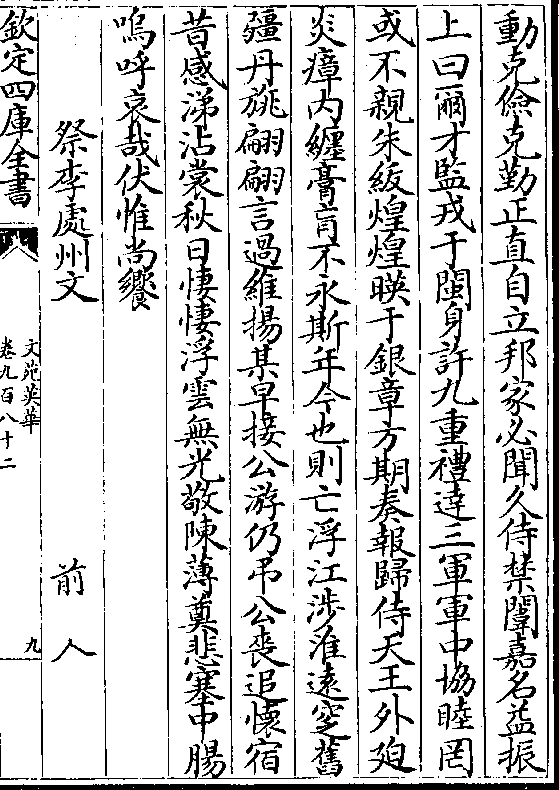 動克儉克勤正直自立邦家必聞久侍禁闈嘉名益振
上曰爾才監戎于閩身許九重禮達三軍軍中協睦罔
或不親朱紱煌煌暎于銀章方期奏報歸侍天王外廹
炎瘴内纏膏肓不永斯年今也則亡浮江涉淮遠窆舊
疆丹旐翩翩言過維揚某早接公游仍弔公喪追懷宿
昔感涕沾裳秋日悽悽浮雲無光敬陳薄奠悲塞中腸
嗚呼哀哉伏惟尚饗
祭李處州文 前人
欽定四庫全書
文苑英華
卷九百八十二
九